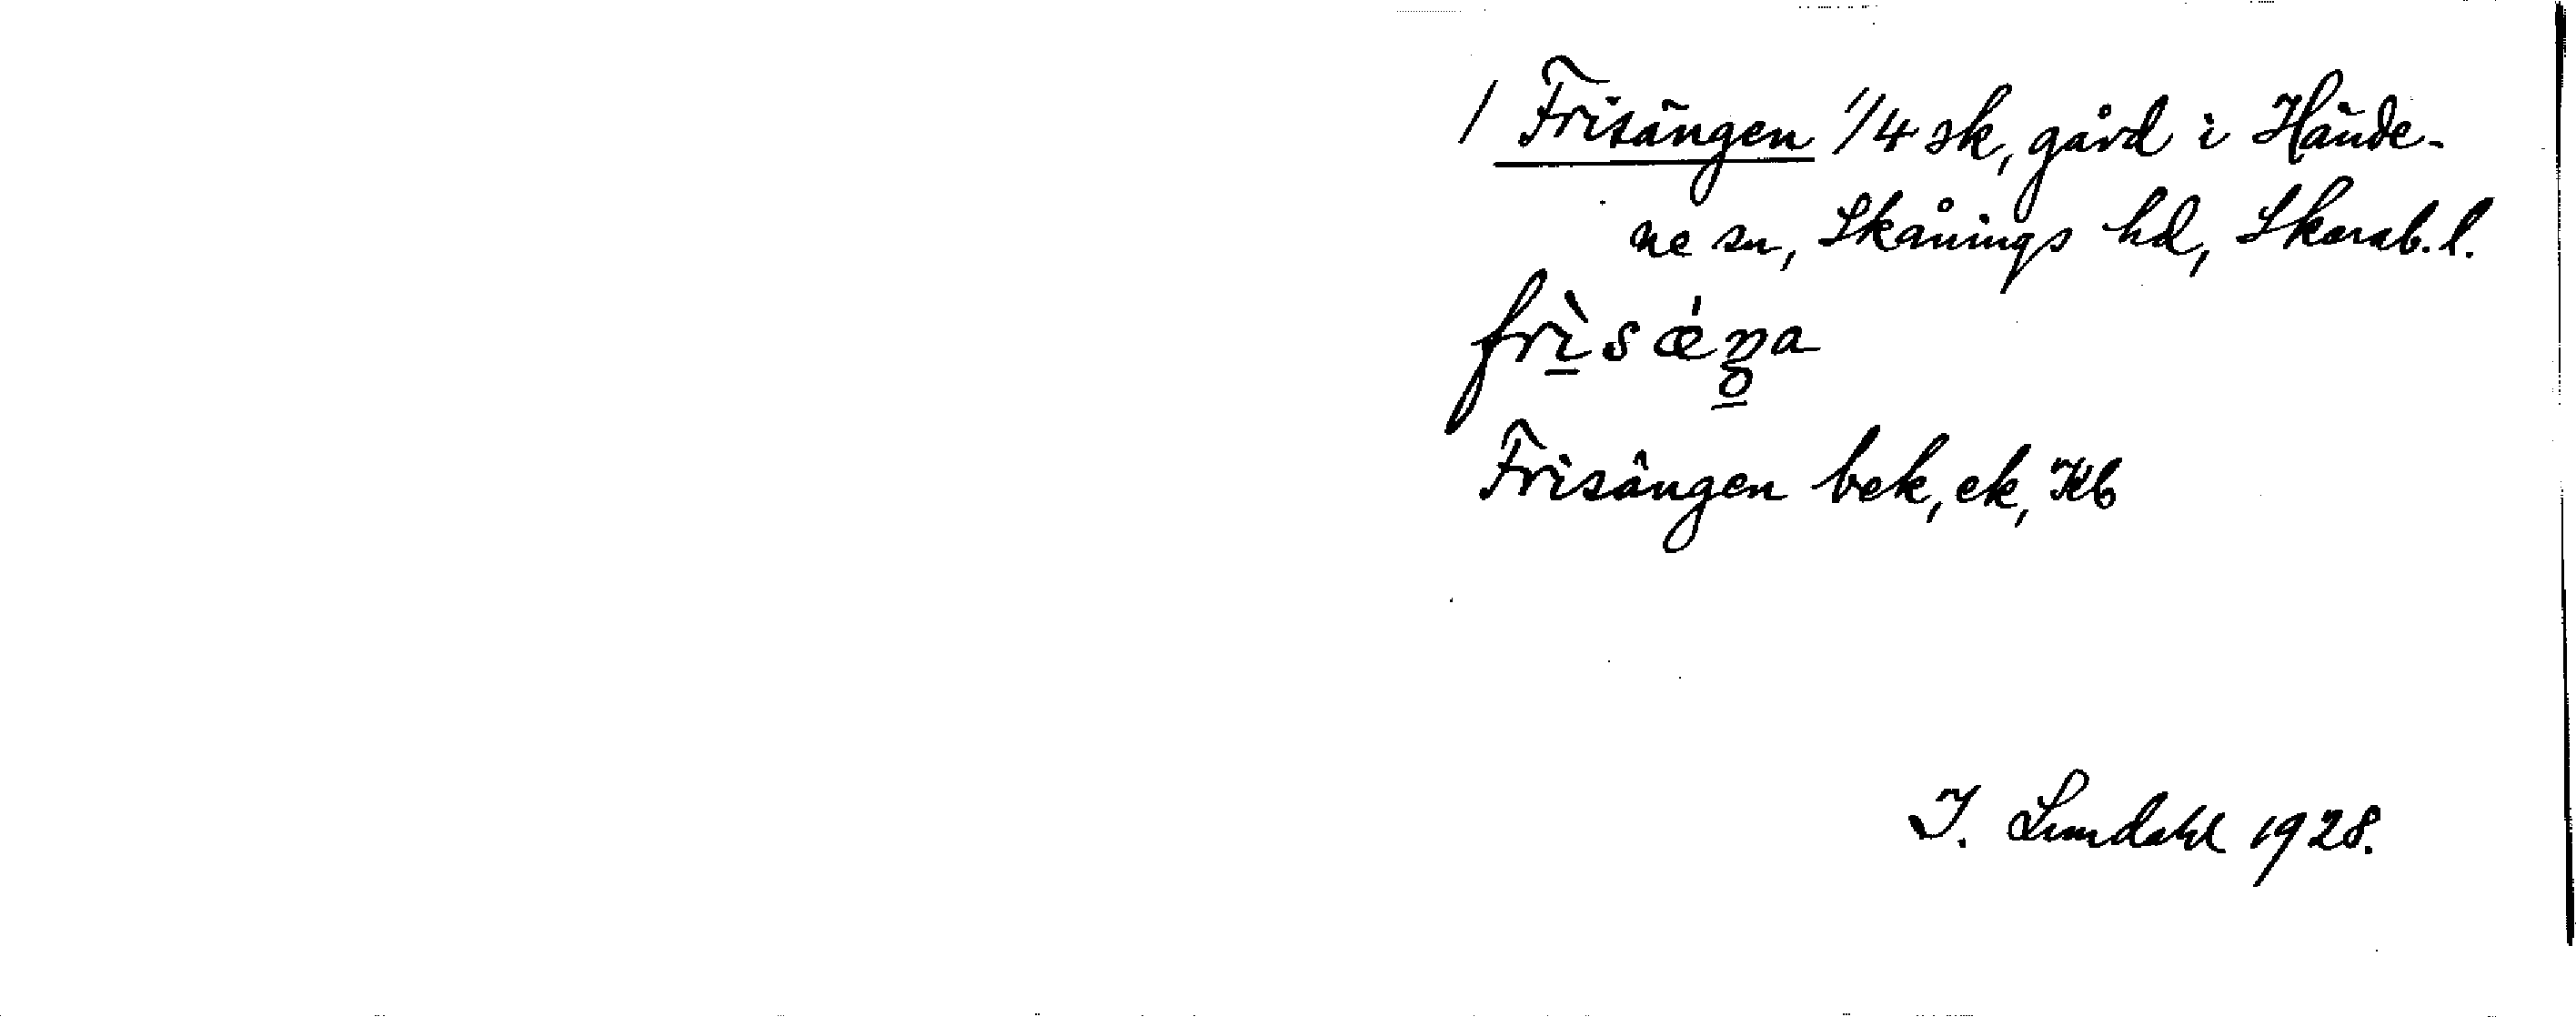 / Frisängen 1/4 sk, gård i Hände-
ne sn, Skånings hd, Skarab. l.
frìsǽŋa
Frisängen bek, ek, Kb
I. Lundahl 1928.